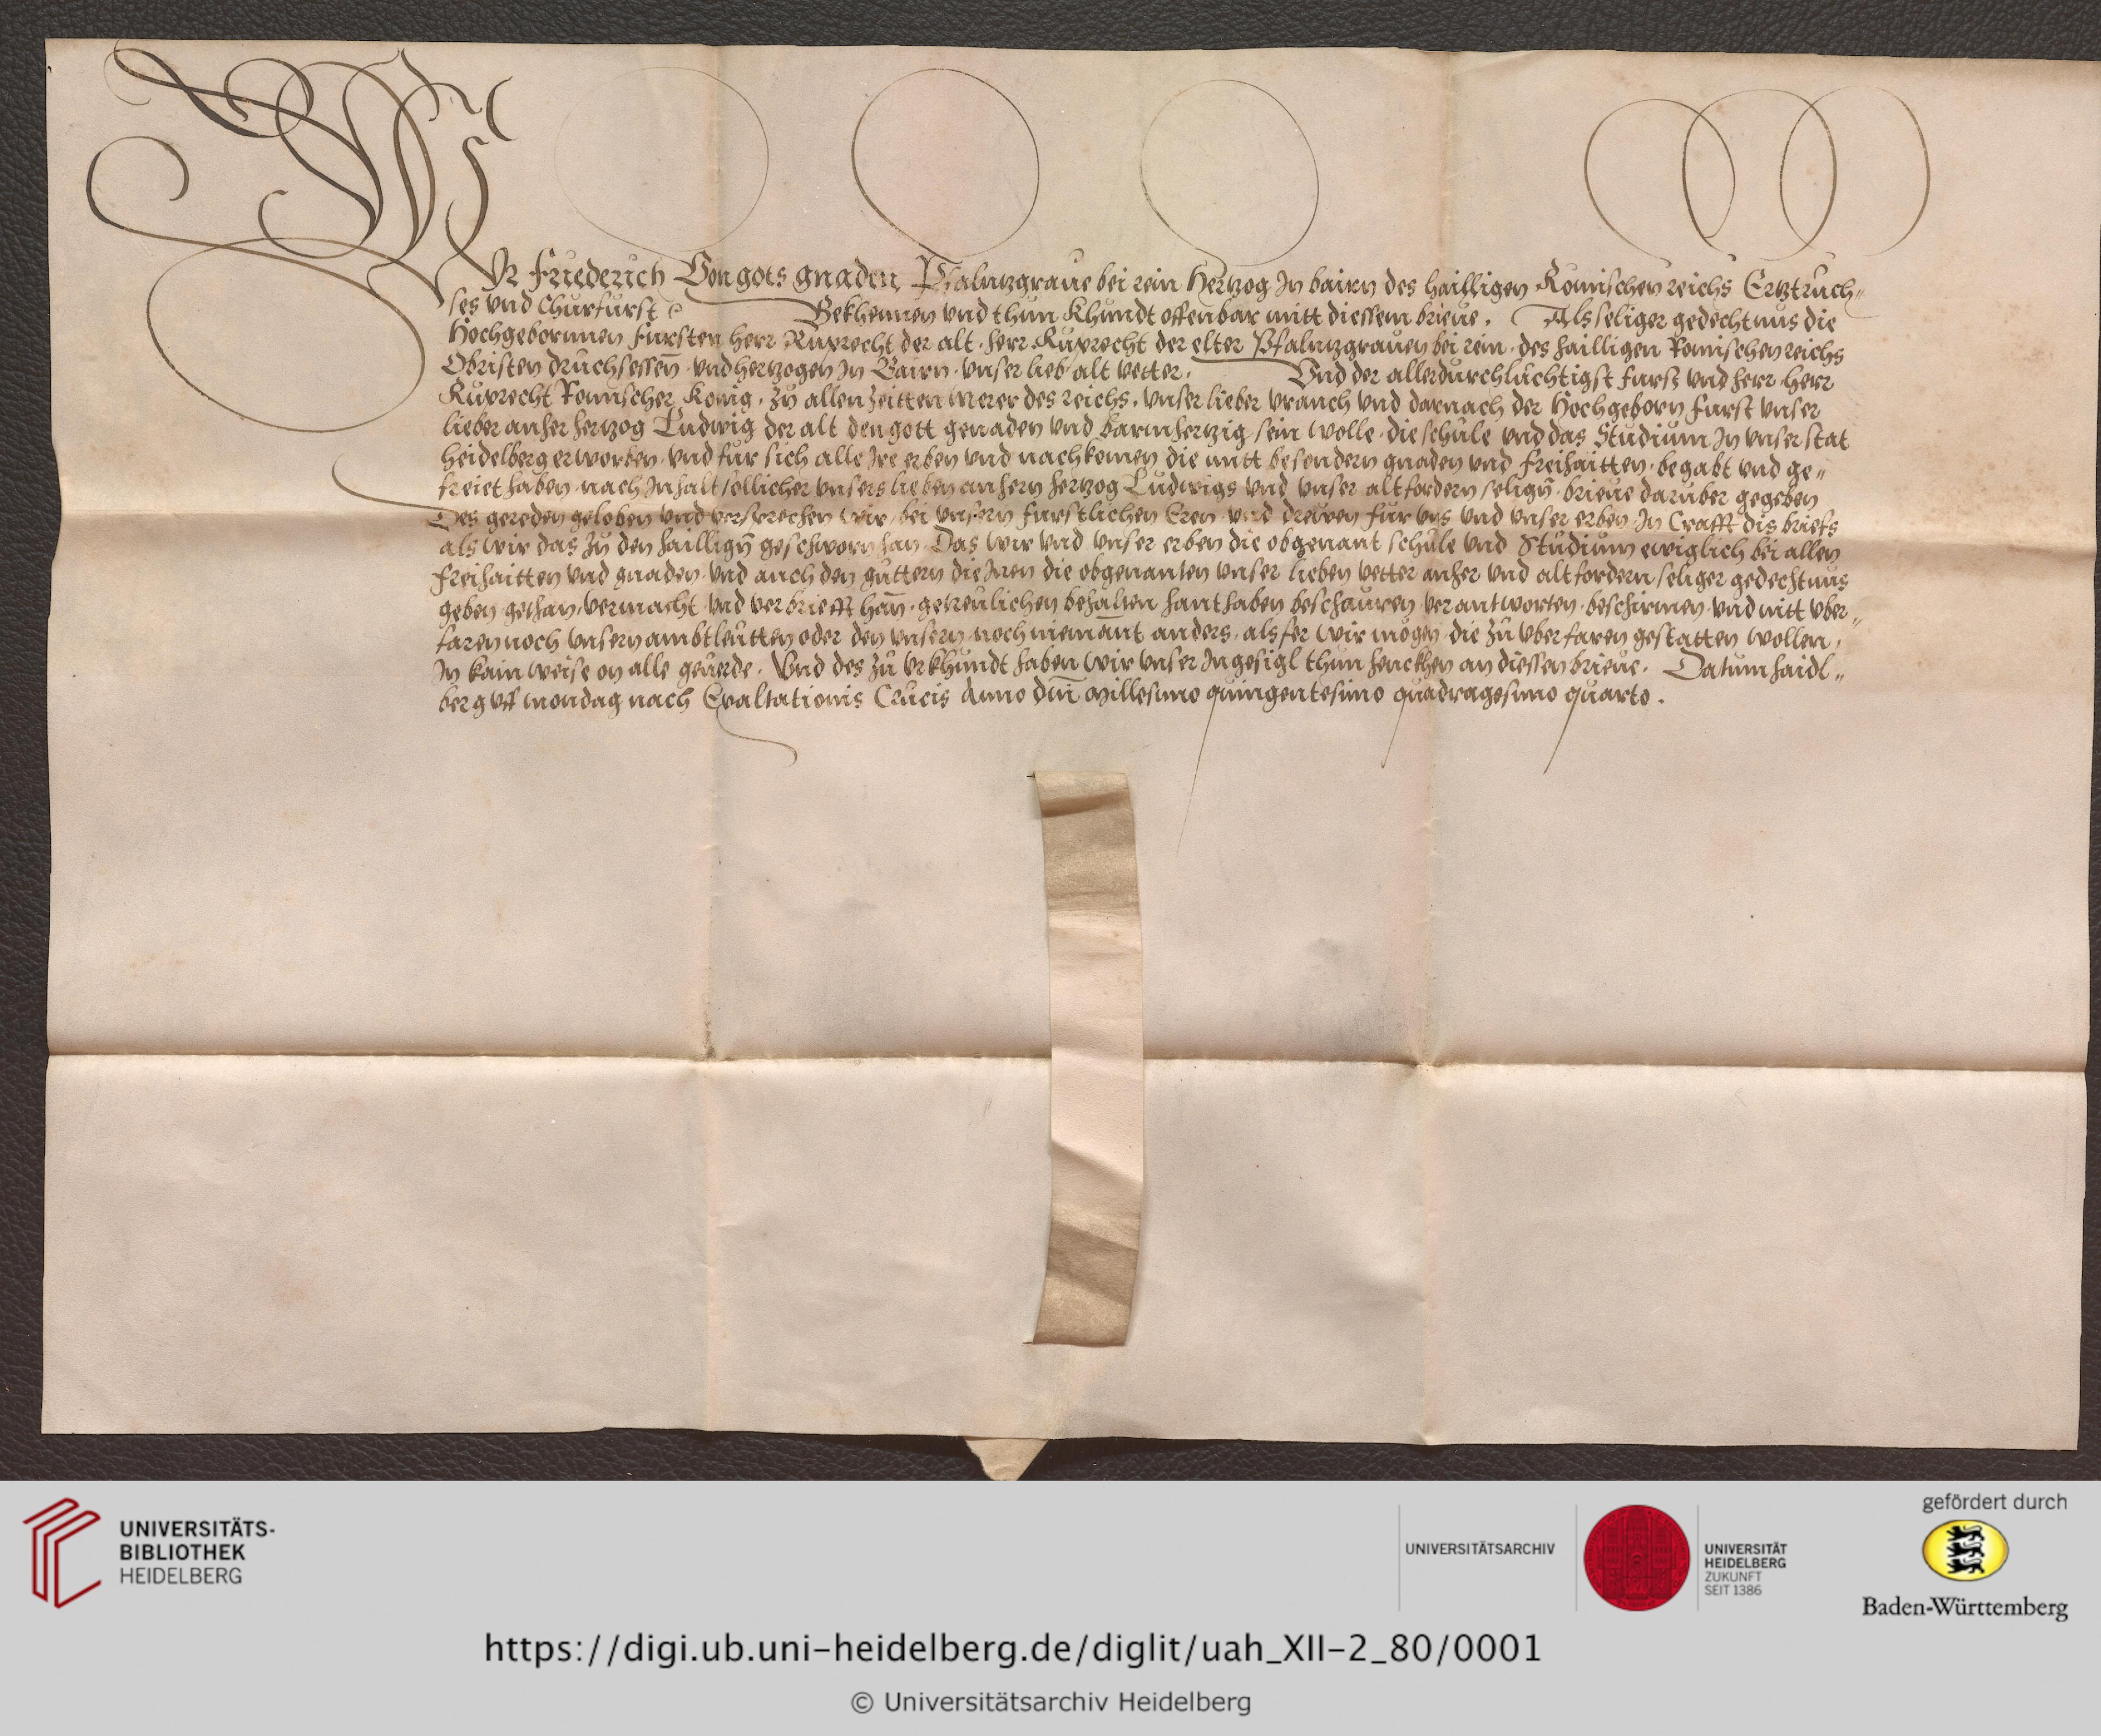 Wir Friederich Von gots gnaden, Pfalntzgraue bei rein Hertzog In bairn des hailligen Romischen reichs Ertztruch„
ses vnd Churfurst
Bekhennen vnd thun Khundt offenbar mitt diessem brieue. Als seliger gedechtnus die
Hochgebornnen Fursten herr Ruprecht der alt. herr Ruprecht der elter Pfalntzgrauen bei rein. des hailligen Romischen reichs
Obristen druchsessen̄ vnd hertzogen In Bairn. vnser lieb alt vetter. Vnd der allerdurchluchtigst furst vnd herr. herr
Ruprecht Romischer Konig. zu allen zeitten merer des reichs. vnser lieber vranch vnd darnach der Hochgeborn furst vnser
lieber anher hertzog Ludwig der alt den gott genaden vnd barmhertzig sein wolle. die schule vnd das Studium In vnser stat
heidelberg erworben. vnd fur sich alle Ire erben vnd nachkomen die mitt besondern gnaden vnd freihaitten. begabt vnd ge„
freiet haben. nach Inhalt sollicher vnsers lieben anhern hertzog Ludwigs vnd vnser altfordern selign̄. brieue daruber gegeben
Des gereden geloben vnd versprechen wir. bei vnsern furstlichen Eren vnd dreuwen fur vns vnd vnser erben. In Crafft dis briefs
als wir das zu den haillign̄ geschworn han. Das wir vnd vnser erben die obgenant schule vnd Studium ewiglich bei allen
freihaitten vnd gnaden. vnd auch den guttern die Inen die obgenanten vnser lieben vetter anher vnd altfordern seliger gedechtnus
geben gethan. vermacht. vnd verbriefft han̄. getreulichen behalten hanthaben beschauren. verantworten. beschirmen. vnd nitt vber„
faren noch vnsern ambtleutten oder den vnsern. noch niemant anders. als fer wir mogen. die zu vberfaren gestatten wollen.
In kain weise on alle geuerde. Vnd des zu vrkhundt haben wir vnser Ingesigl thun henckhen an diessen brieue. Datum haidl„
berg vff mondag nach Exaltationis Crucis Anno dn̄i Millesimo quingentesimo quadragesimo quarto.
UNIVERSITÄTS-
BIBLIOTHEK
HEIDELBERG
UNIVERSITÄTSARCHIV
UNIVERSITÄT
HEIDELBERG
ZUKUNFT
SEIT 1386
gefördert durch
Baden-Württemberg
https://digi.ub.uni-heidelberg.de/diglit/uah_XII-2_80/0001
© Universitätsarchiv Heidelberg